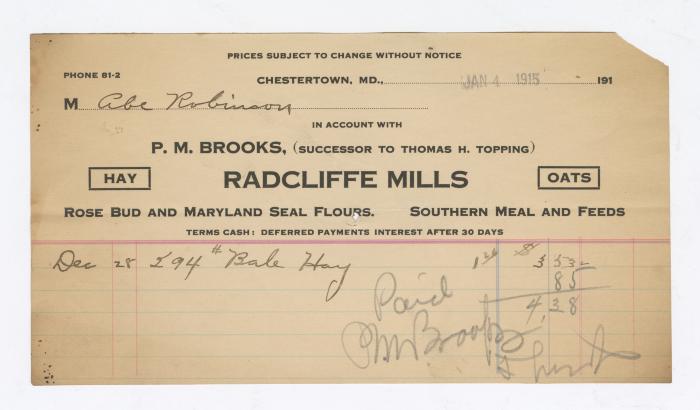 PRICES SUBJECT TO CHANGE WITHOUT NOTICE
PHONE 81-2
CHESTERTOWN, MD., JAN 4 1915 191
M Abe Robinson
IN ACCOUNT WITH
P. M. BROOKS, (SUCCESSOR TO THOMAS H. TOPPING)
HAY RADCLIFFE MILLS OATS
ROSE BUD AND MARYLAND SEAL FLOURS. SOUTHERN MEAL AND FEEDS
TERMS CASH: DEFERRED PAYMENTS INTEREST AFTER 30 DAYS
Dec 28 294# Bale Hay 1 20 $ 3 53
85
Paid 4,38
PM Brooks